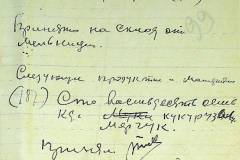 99
Принято на склад от
мельници.
Следующи продукти и материали
(187) Сто восимдесят семь
кг. Муки кукурузной
Принял